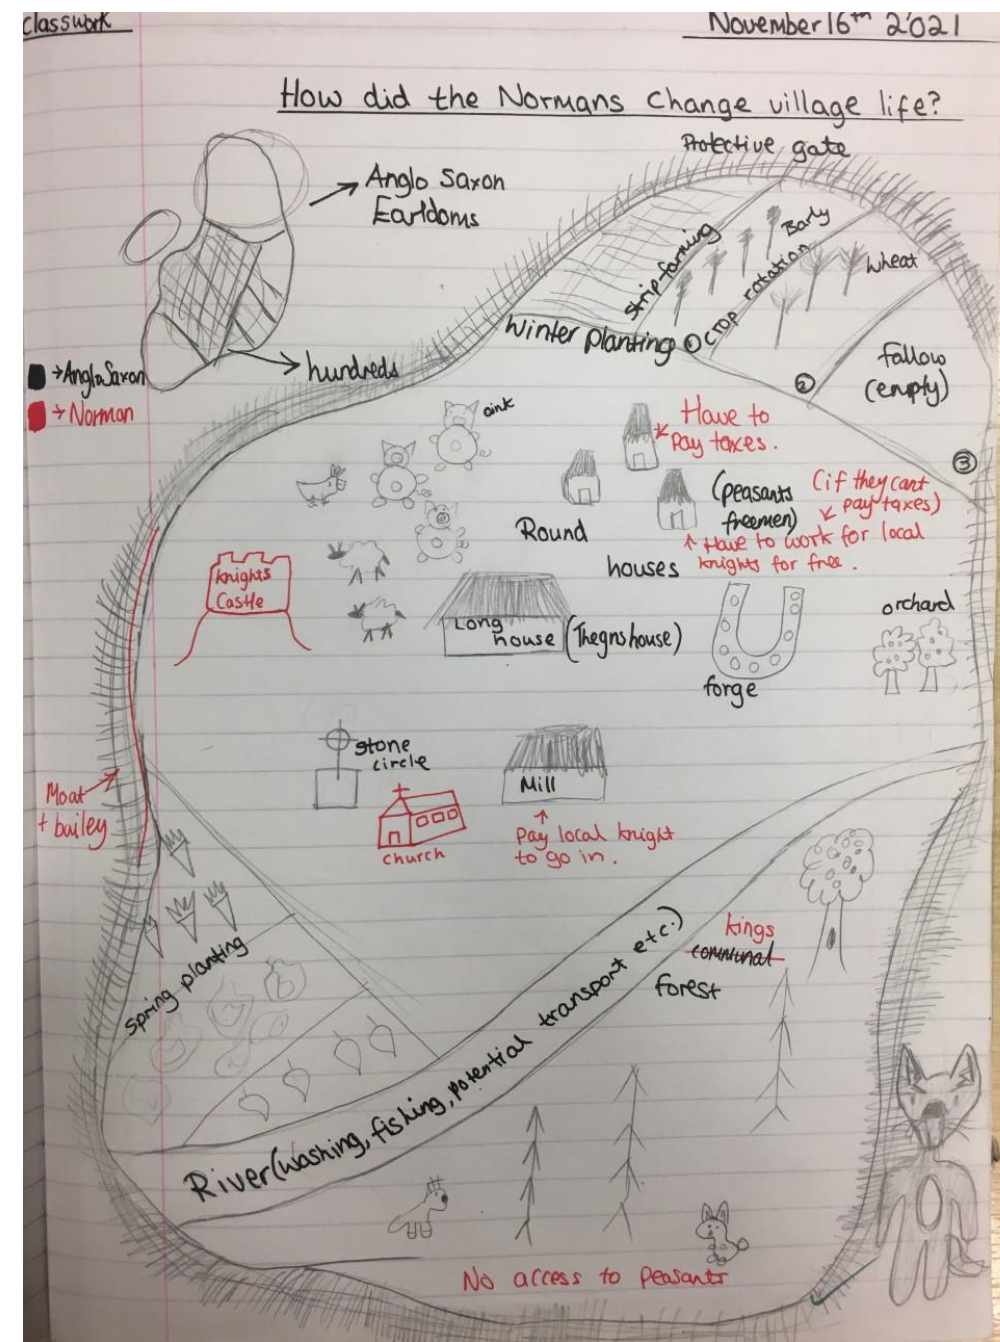 Classwork
November 16th 2021
How did the Normans change village life?
Protective gate
Anglo Saxon
Earldoms
hundreds
→ Anglo Saxon
→ Norman
strip farming
Winter planting
Barly
① crop rotation
wheat
②
fallow
(empty)
③
oink
Have to
pay taxes.
(peasants
freemen)
(if they cant
pay taxes)
Have to work for local
knights for free.
Round
houses
knights
Castle
Long
house (Thegns house)
forge
orchard
stone
circle
church
Mill
Pay local knight
to go in.
Moat
+ bailey
spring planting
River (washing, fishing, potential transport etc.)
kings
communal
forest
No access to peasants